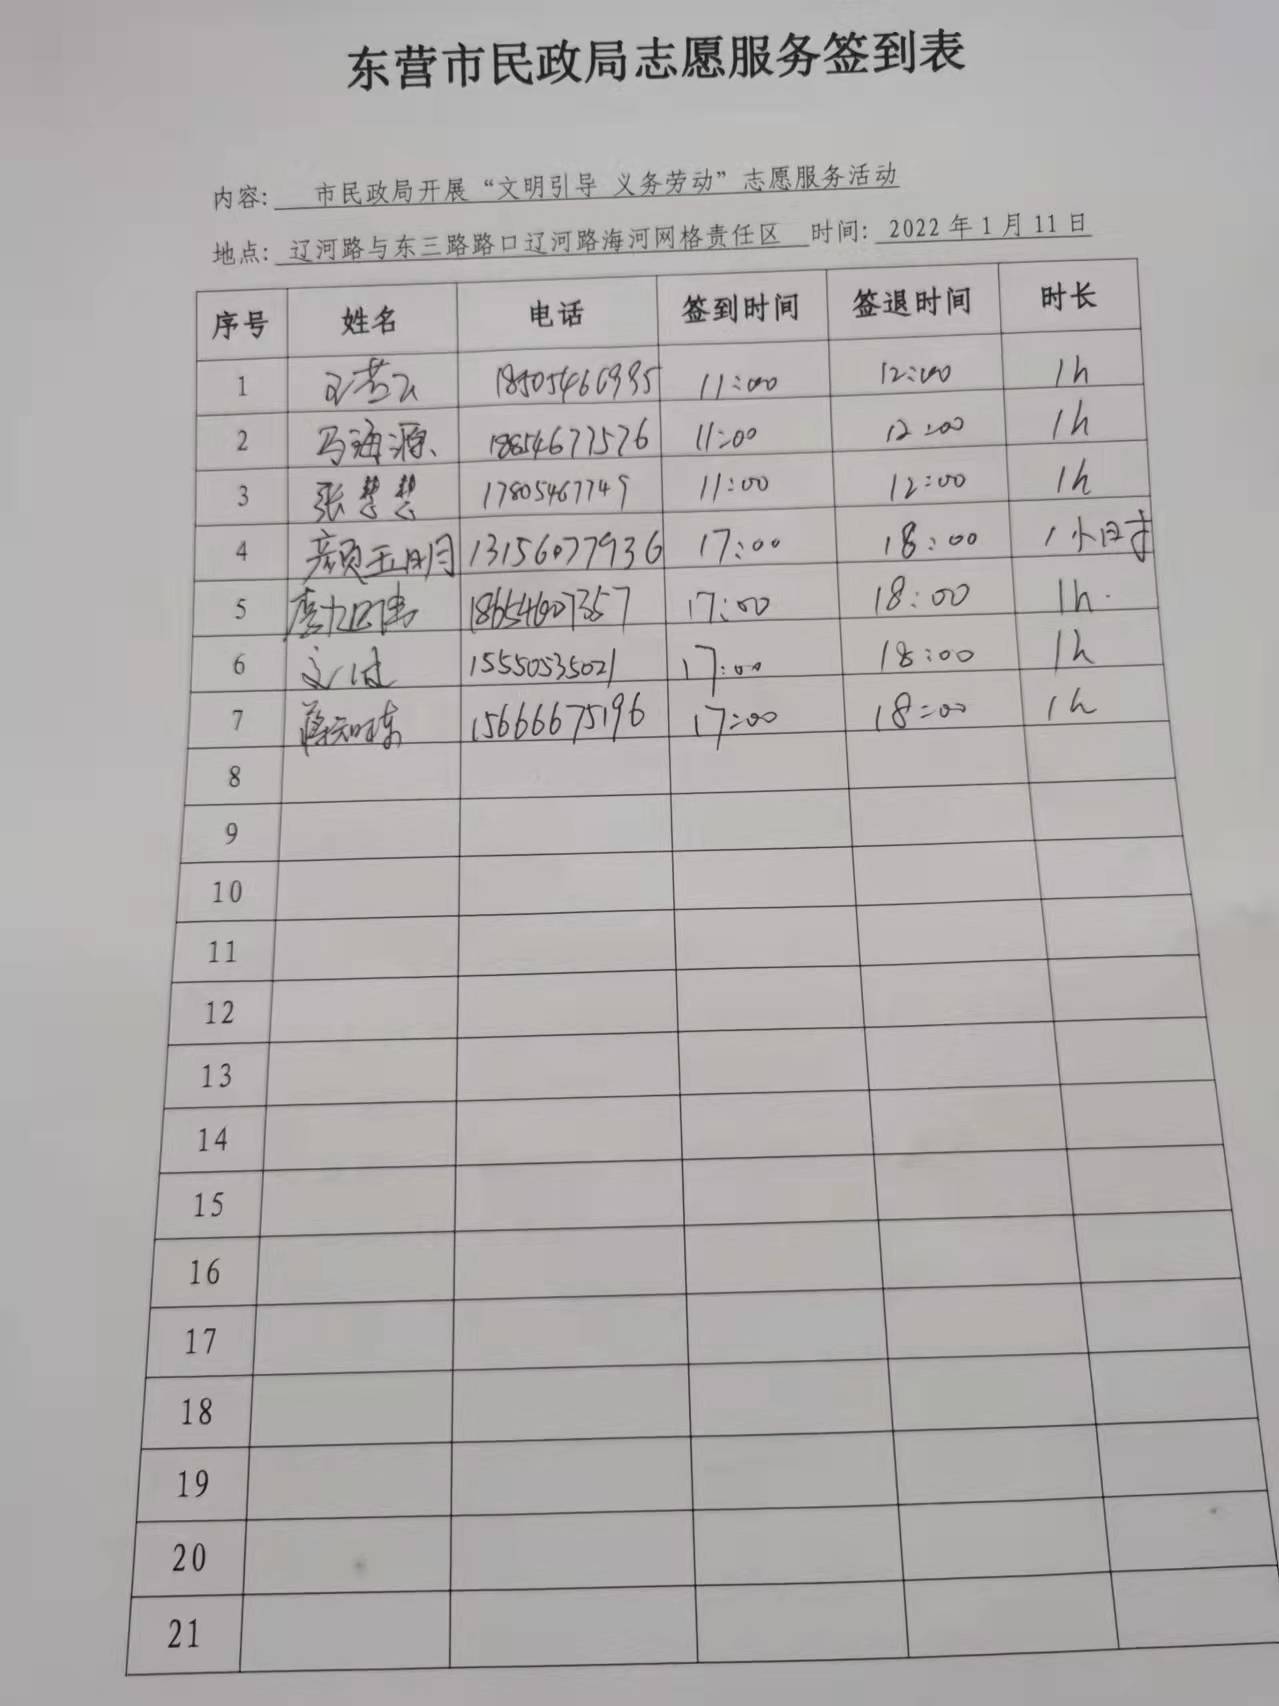 东营市民政局志愿服务签到表
内容: 市民政局开展“文明引导 义务劳动”志愿服务活动
地点: 辽河路与东三路路口辽河路海河网格责任区 时间: 2022年1月11日
序号 姓名 电话 签到时间 签退时间 时长
1 18505466995 11:00 12:00 1h
2 马海源 18854677576 11:00 12:00 1h
3 张慧慧 17805467749 11:00 12:00 1h
4 颜玉明 13156077936 17:00 18:00 1小时
5 18654607357 17:00 18:00 1h.
6 15550535021 17:00 18:00 1h
7 15666675196 17:00 18:00 1h
8
9
10
11
12
13
14
15
16
17
18
19
20
21